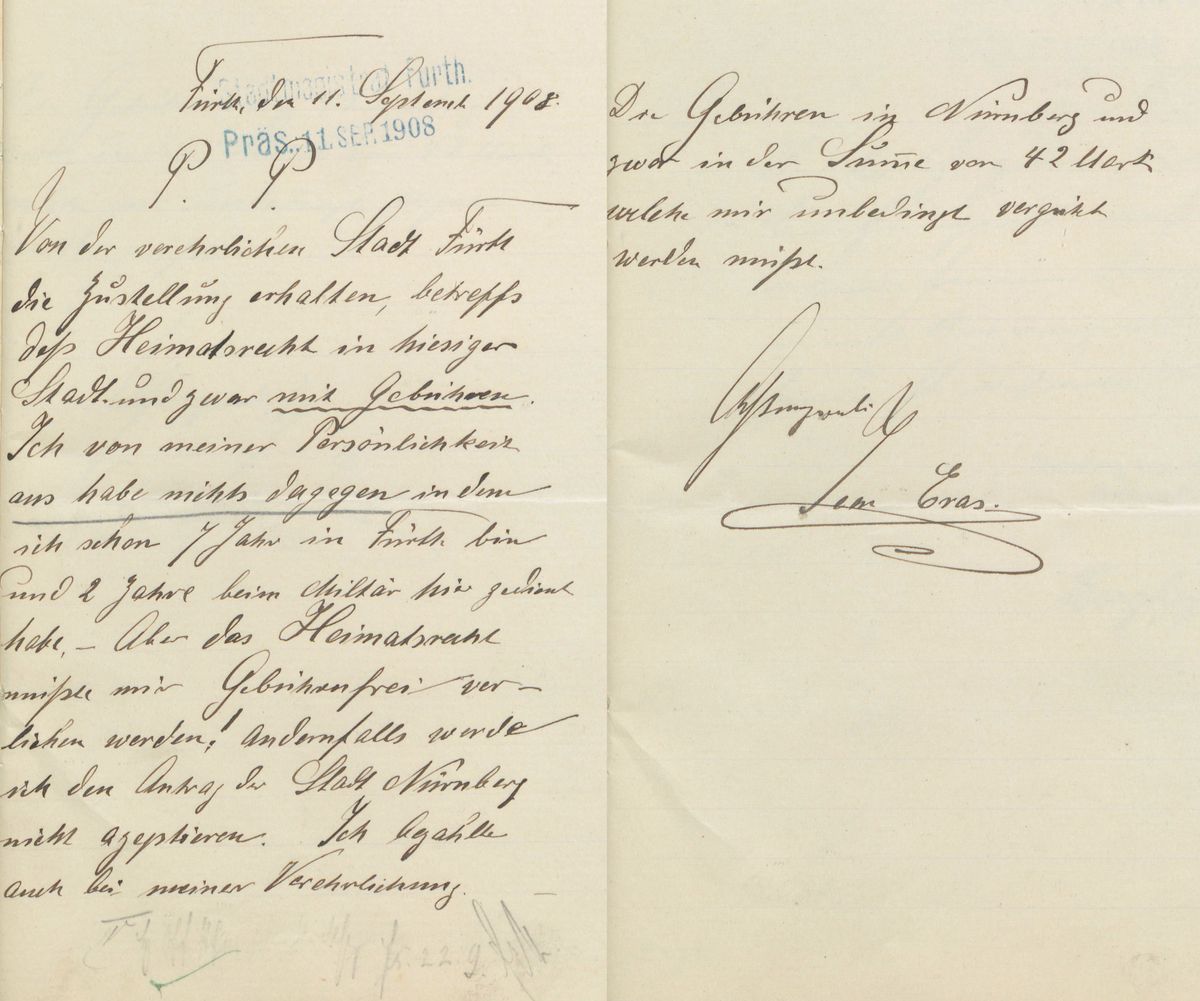 Stadtmagistrat Fürth.
Fürth, den 11. Septemb 1908.
Präs.: 11. SEP. 1908
P. P.
Von der verehrlichen Stadt Fürth
die Zustellung erhalten, betreffs
deß Heimatsrecht in hiesiger
Stadt und zwar mit Gebühren.
Ich von meiner Persönlichkeit
aus habe nichts dagegen in dem
ich schon 7 Jahr in Fürth bin
und 2 Jahre beim Militär hier gedient
habe. – Aber das Heimatsrecht
müßte mir Gebührenfrei ver-
liehen werden! andernfalls werde
ich den Antrag der Stadt Nürnberg
nicht azeptieren. Ich bezahlte
auch bei meiner Verehrlichung
22. 9.
Die Gebühren in Nürnberg und
zwar in der Sum̅e von 42 Mark
welche mir unbedingt vergükt
werden müßte.
Achtungsvoll
Eras.